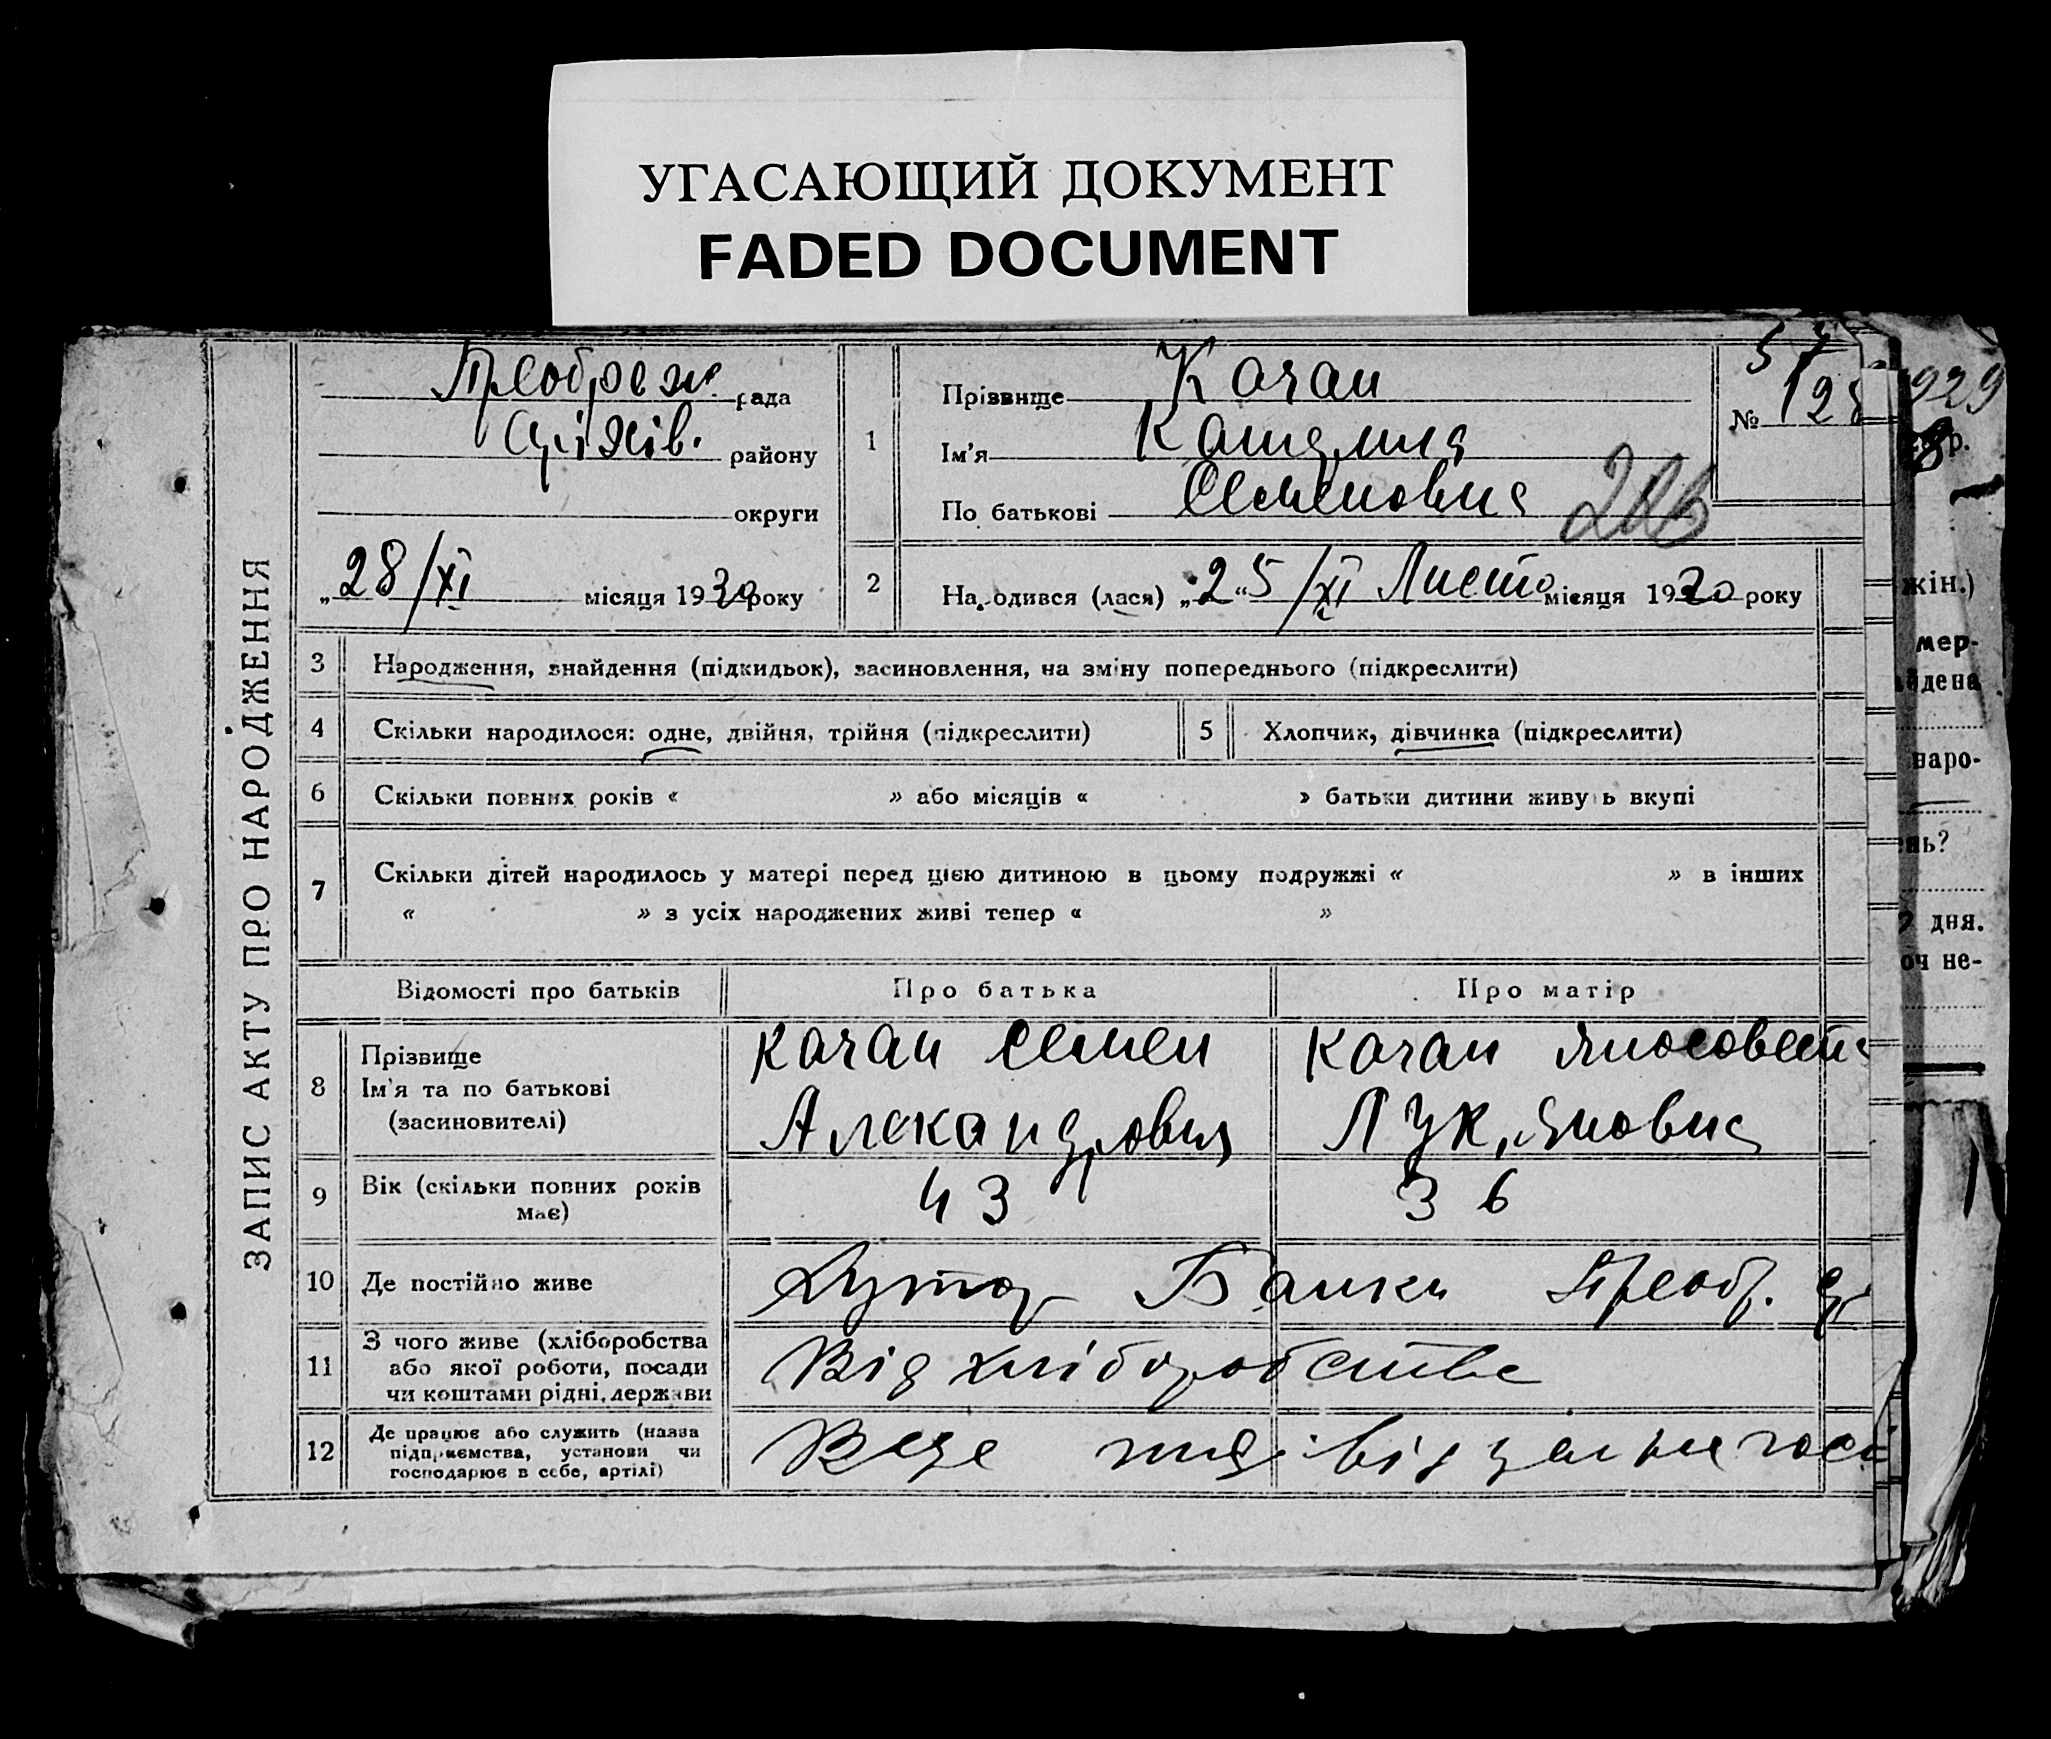 УГАСАЮЩИЙ ДОКУМЕНТ
FADED DOCUMENT
ЗАПИС АКТУ ПРО НАРОДЖЕННЯ
Преображ. рада
Оріхів. району
округи
„28/XI місяця 1930 року
1 Прізвище Качан
Ім'я
По батькові Семеновна
№
2 Народився (лася) „25/XI Листо місяця 1930 року
3 Народження, знайдення (підкидьок), засиновлення, на зміну попереднього (підкреслити)
4 Скільки народилося: одне, двійня, трійня (підкреслити)
5 Хлопчик, дівчинка (підкреслити)
6 Скільки повних років « » або місяців « » батьки дитини живуть вкупі
7 Скільки дітей народилось у матері перед цією дитиною в цьому подружжі « » в інших
« » з усіх народжених живі тепер « »
Відомості про батьків Про батька Про матір
8 Прізвище Ім'я та по батькові (засиновителі)
Качан Семен Александрович
Качан
Лук,яновна
9 Вік (скільки повних років має) 43 36
10 Де постійно живе Хутор Банки Преобр.
11 З чого живе (хліборобства або якої роботи, посади чи коштами рідні, держави
Від хліборобства
12 Де працює або служить (назва підприємства, установи чи господарює в себе, артілі)
929
р.
жін.)
мер-
йдена
наро-
нь?
дня.
оч не-